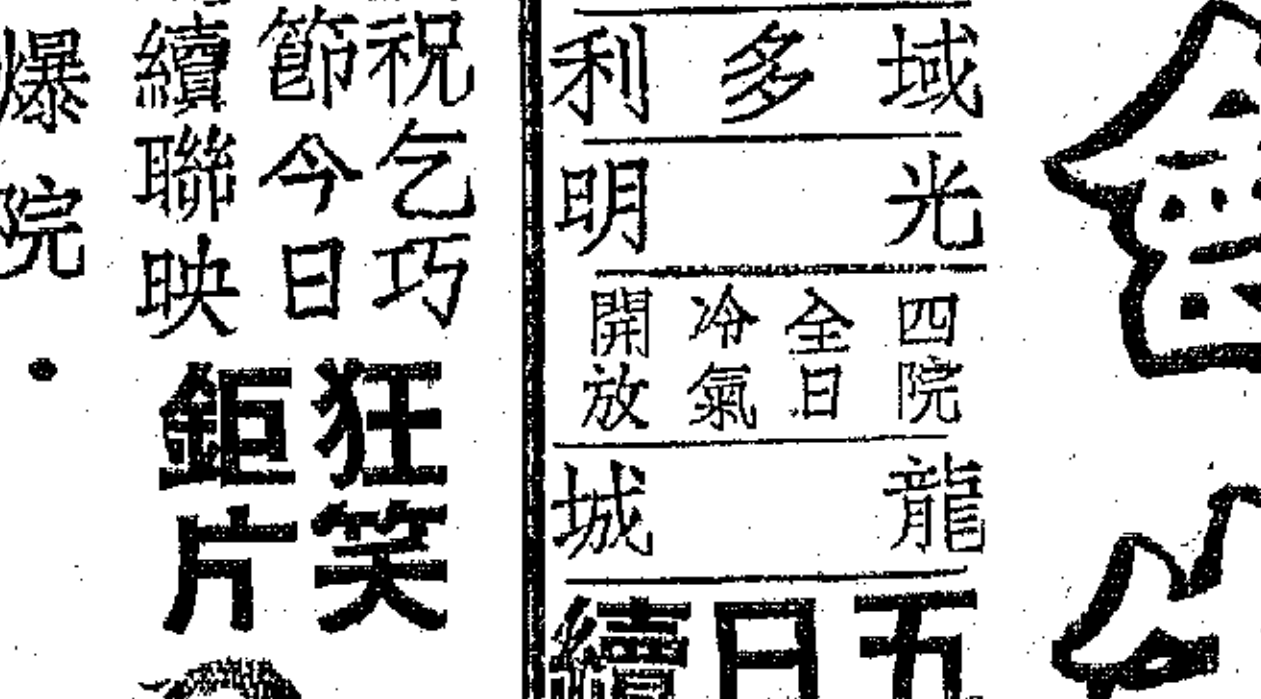 域多利
光明
四院
全日
冷氣
開放
龍城
五日續
祝乞巧
節今日
續聯映
狂笑
鉅片
爆院